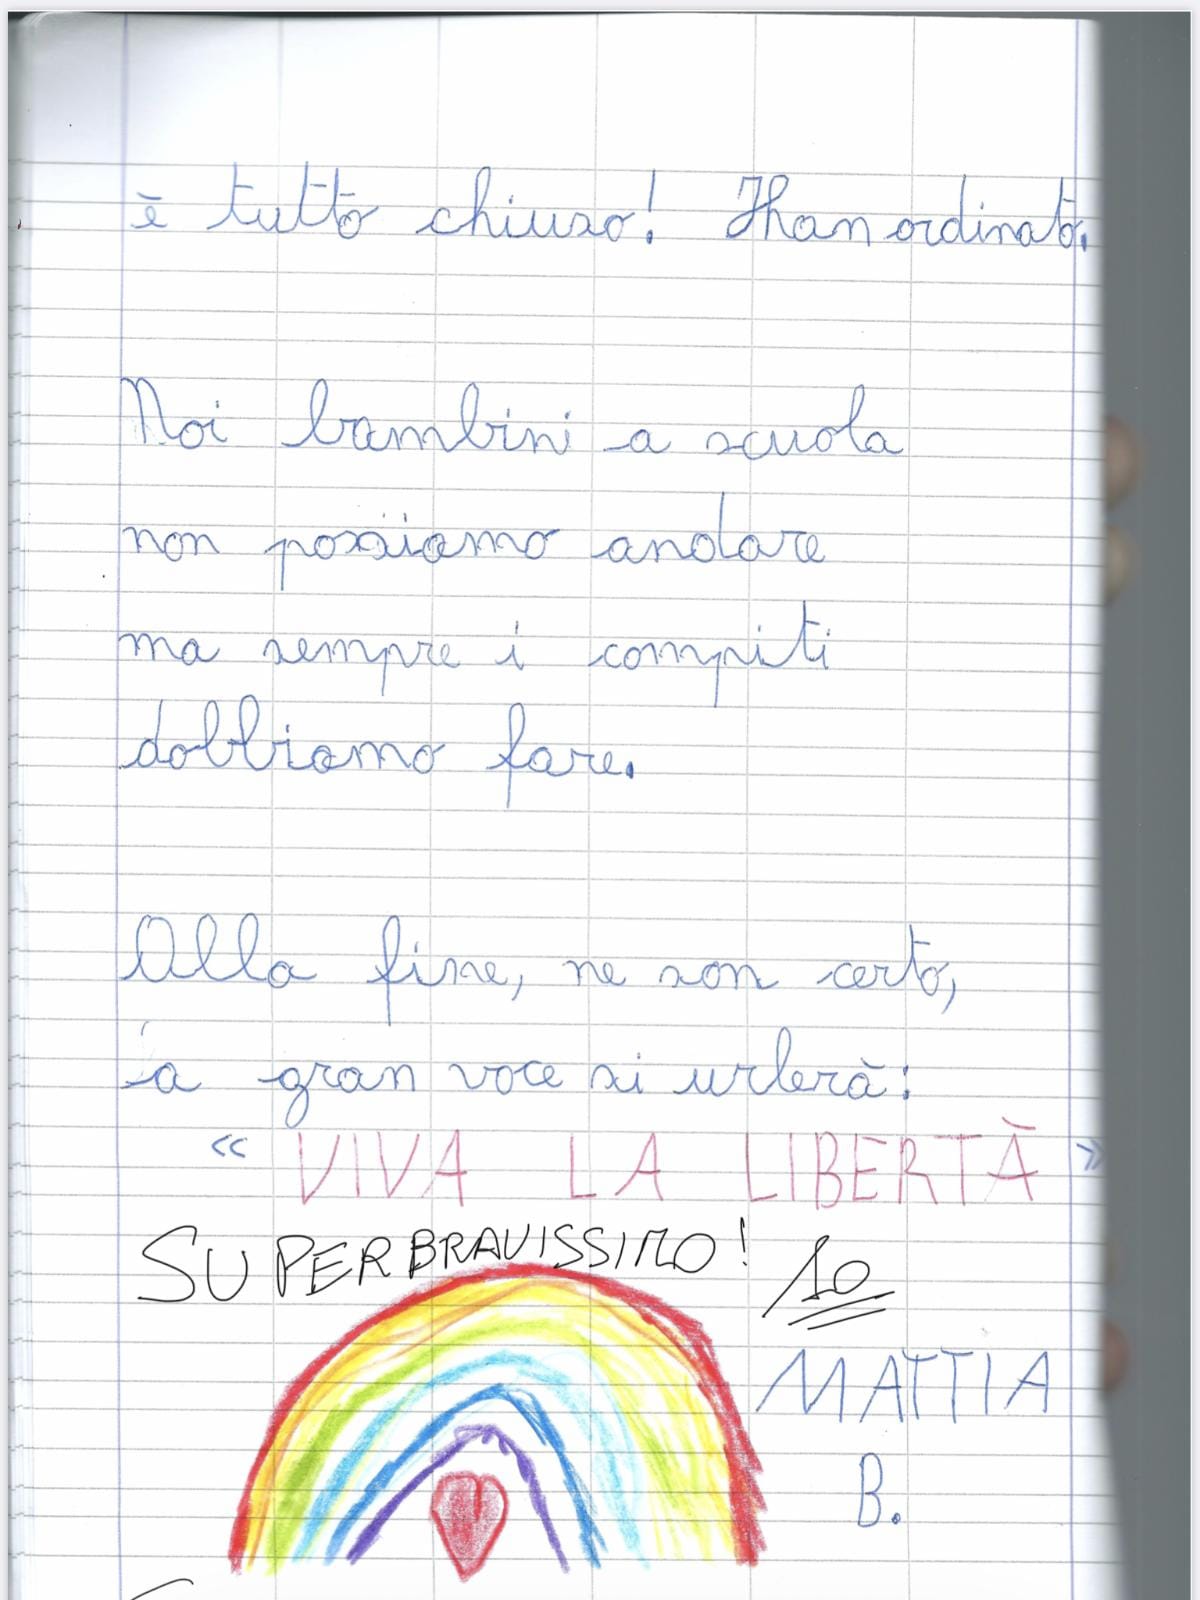 è tutto chiuso! Han ordinato.
Noi bambini a scuola
non possiamo andare
ma sempre i compiti
dobbiamo fare.
Alla fine, ne son certo,
a gran voce si urlerà:
« VIVA LA LIBERTÀ »
SUPERBRAVISSIMO! 10
MATTIA
B.